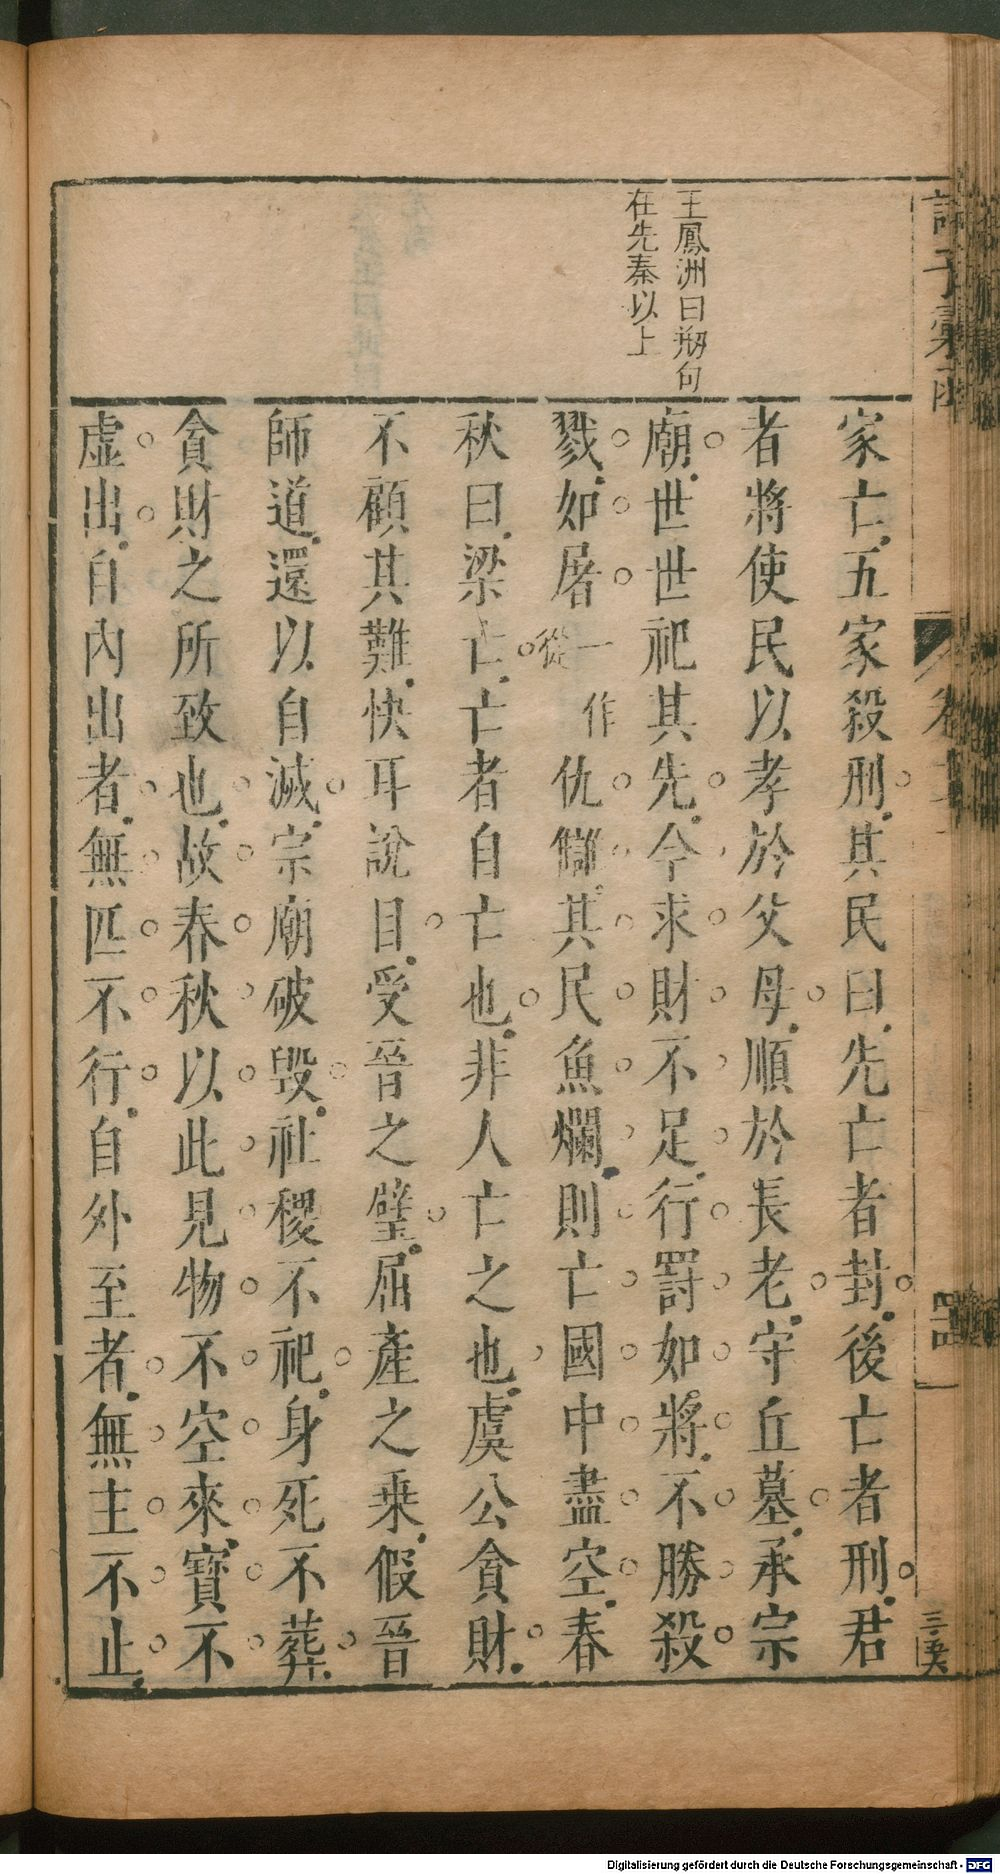 王鳳洲曰叛句
在先秦以上
家亡五家殺刑其民曰先亡者封後亡者刑君
者將使民以孝於父母順於長老守丘墓承宗
廟世世祀其先今求財不足行罰如將不勝殺
戮如屠一作從仇讎其民魚爛則亡國中盡空春
秋曰梁亡亡者自亡也非人亡之也虞公貪財
不顧其難快耳說目受晉之璧屈產之乘假晉
師道還以自滅宗廟破毀社稷不祀身死不葬
貪財之所致也故春秋以此見物不空來寶不
虛出自內出者無匹不行自外至者無主不止
Digitalisierung gefördert durch die Deutsche Forschungsgemeinschaft - DFG